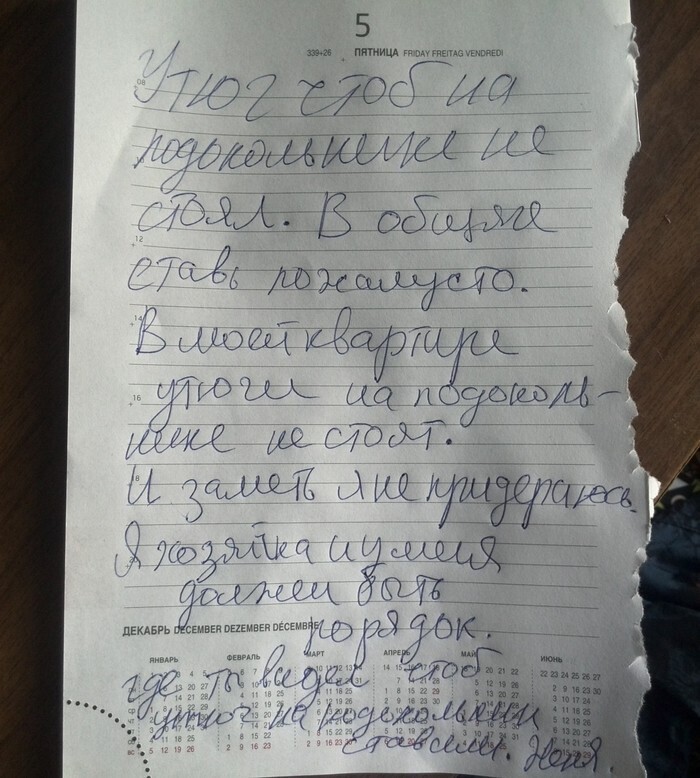 5
339+26 ПЯТНИЦА FRIDAY FREITAG VENDREDI
Утюг чтоб на
подокольнике не
стоял. В общяге
ставь пожалусто.
В моей квартире
утюги на подоколь-
нике не стоят.
И заметь я не придераюсь.
Я хозяйка и у меня
должен быть
порядок.
ДЕКАБРЬ DECEMBER DEZEMBER DÉCEMBRE
ЯНВАРЬ ФЕВРАЛЬ МАРТ АПРЕЛЬ МАЙ ИЮНЬ
где ты видел чтоб
утюг на подокольники
ставили.